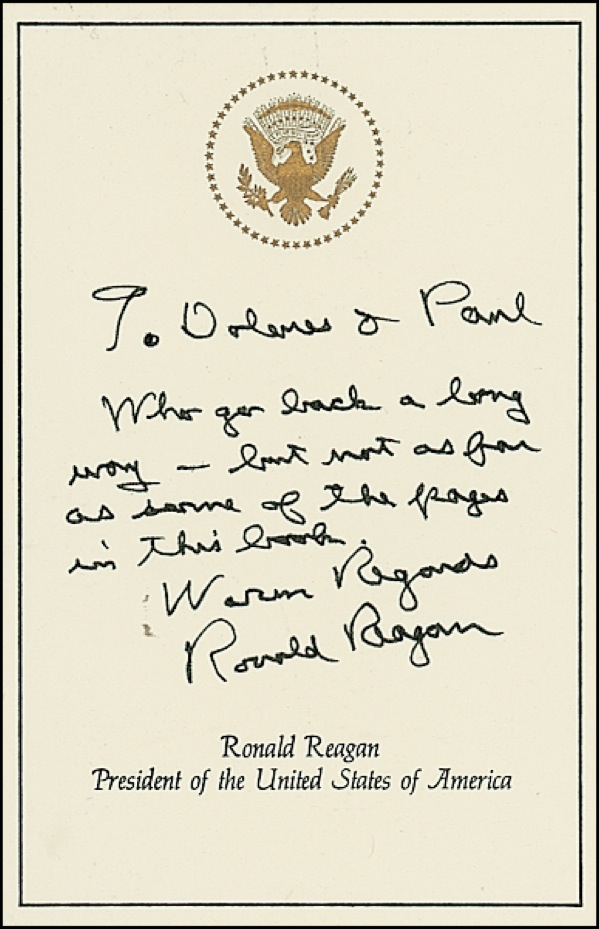 To Dolores & Paul
Who go back a long
way – but not as far
as some of the pages
in this book.
Warm Regards
Ronald Reagan
Ronald Reagan
President of the United States of America